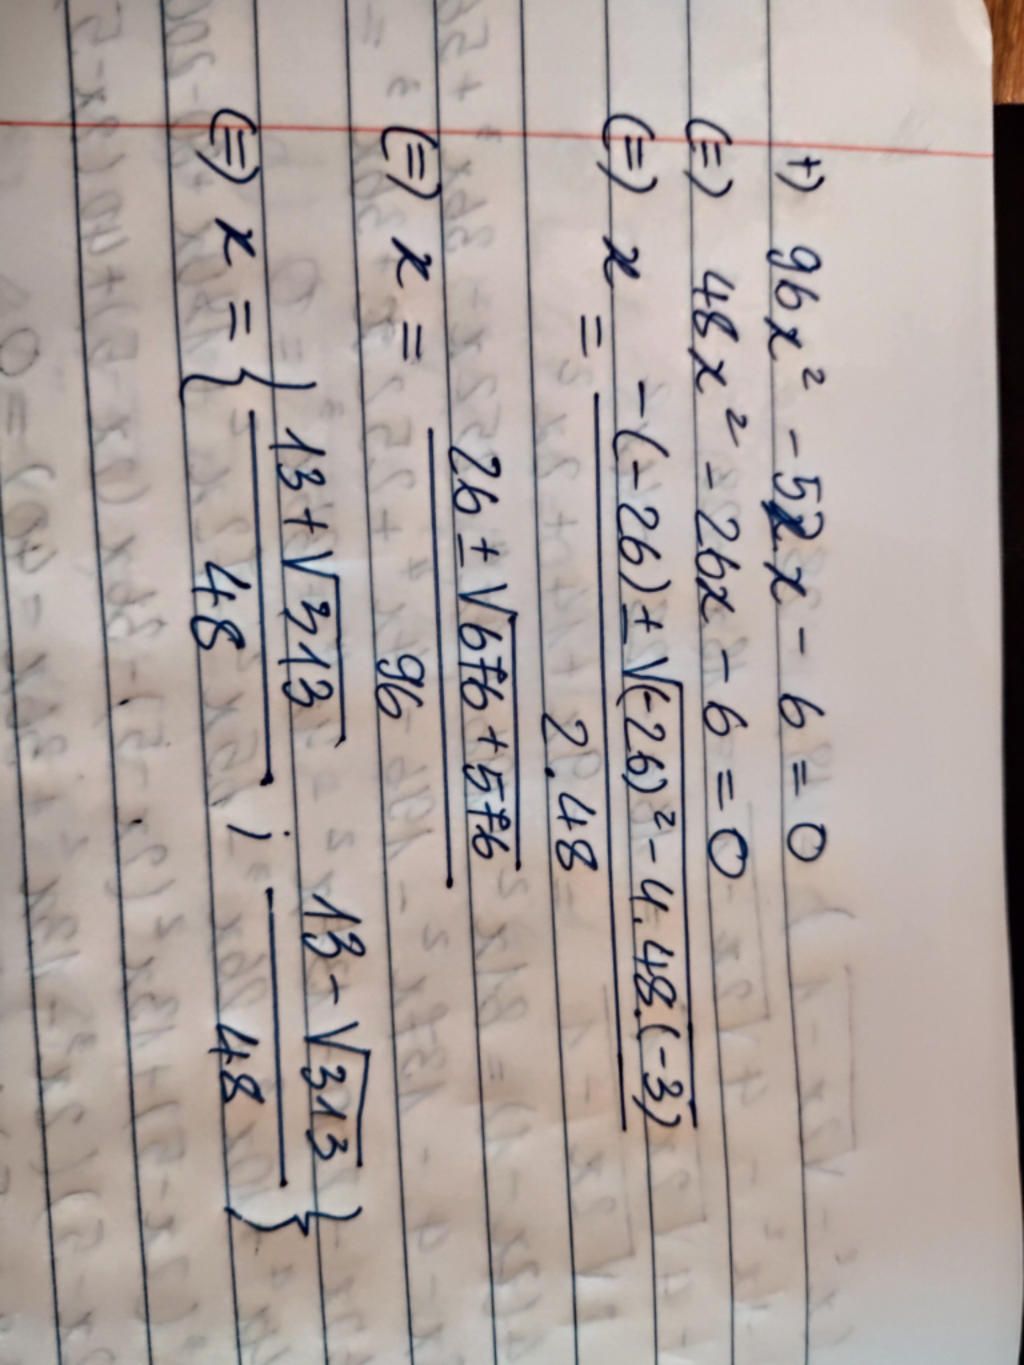 +) 96x² - 52x - 6 = 0
(=) 48x² - 26x - 6 = 0
(=) x = \frac{-(-26) ± √{(-26)² - 4.48.(-3)}}{2.48}
(=) x = \frac{26 ± √{676 + 576}}{96}
(=) x = { \frac{13 + √{313}}{48} ; \frac{13 - √{313}}{48} }